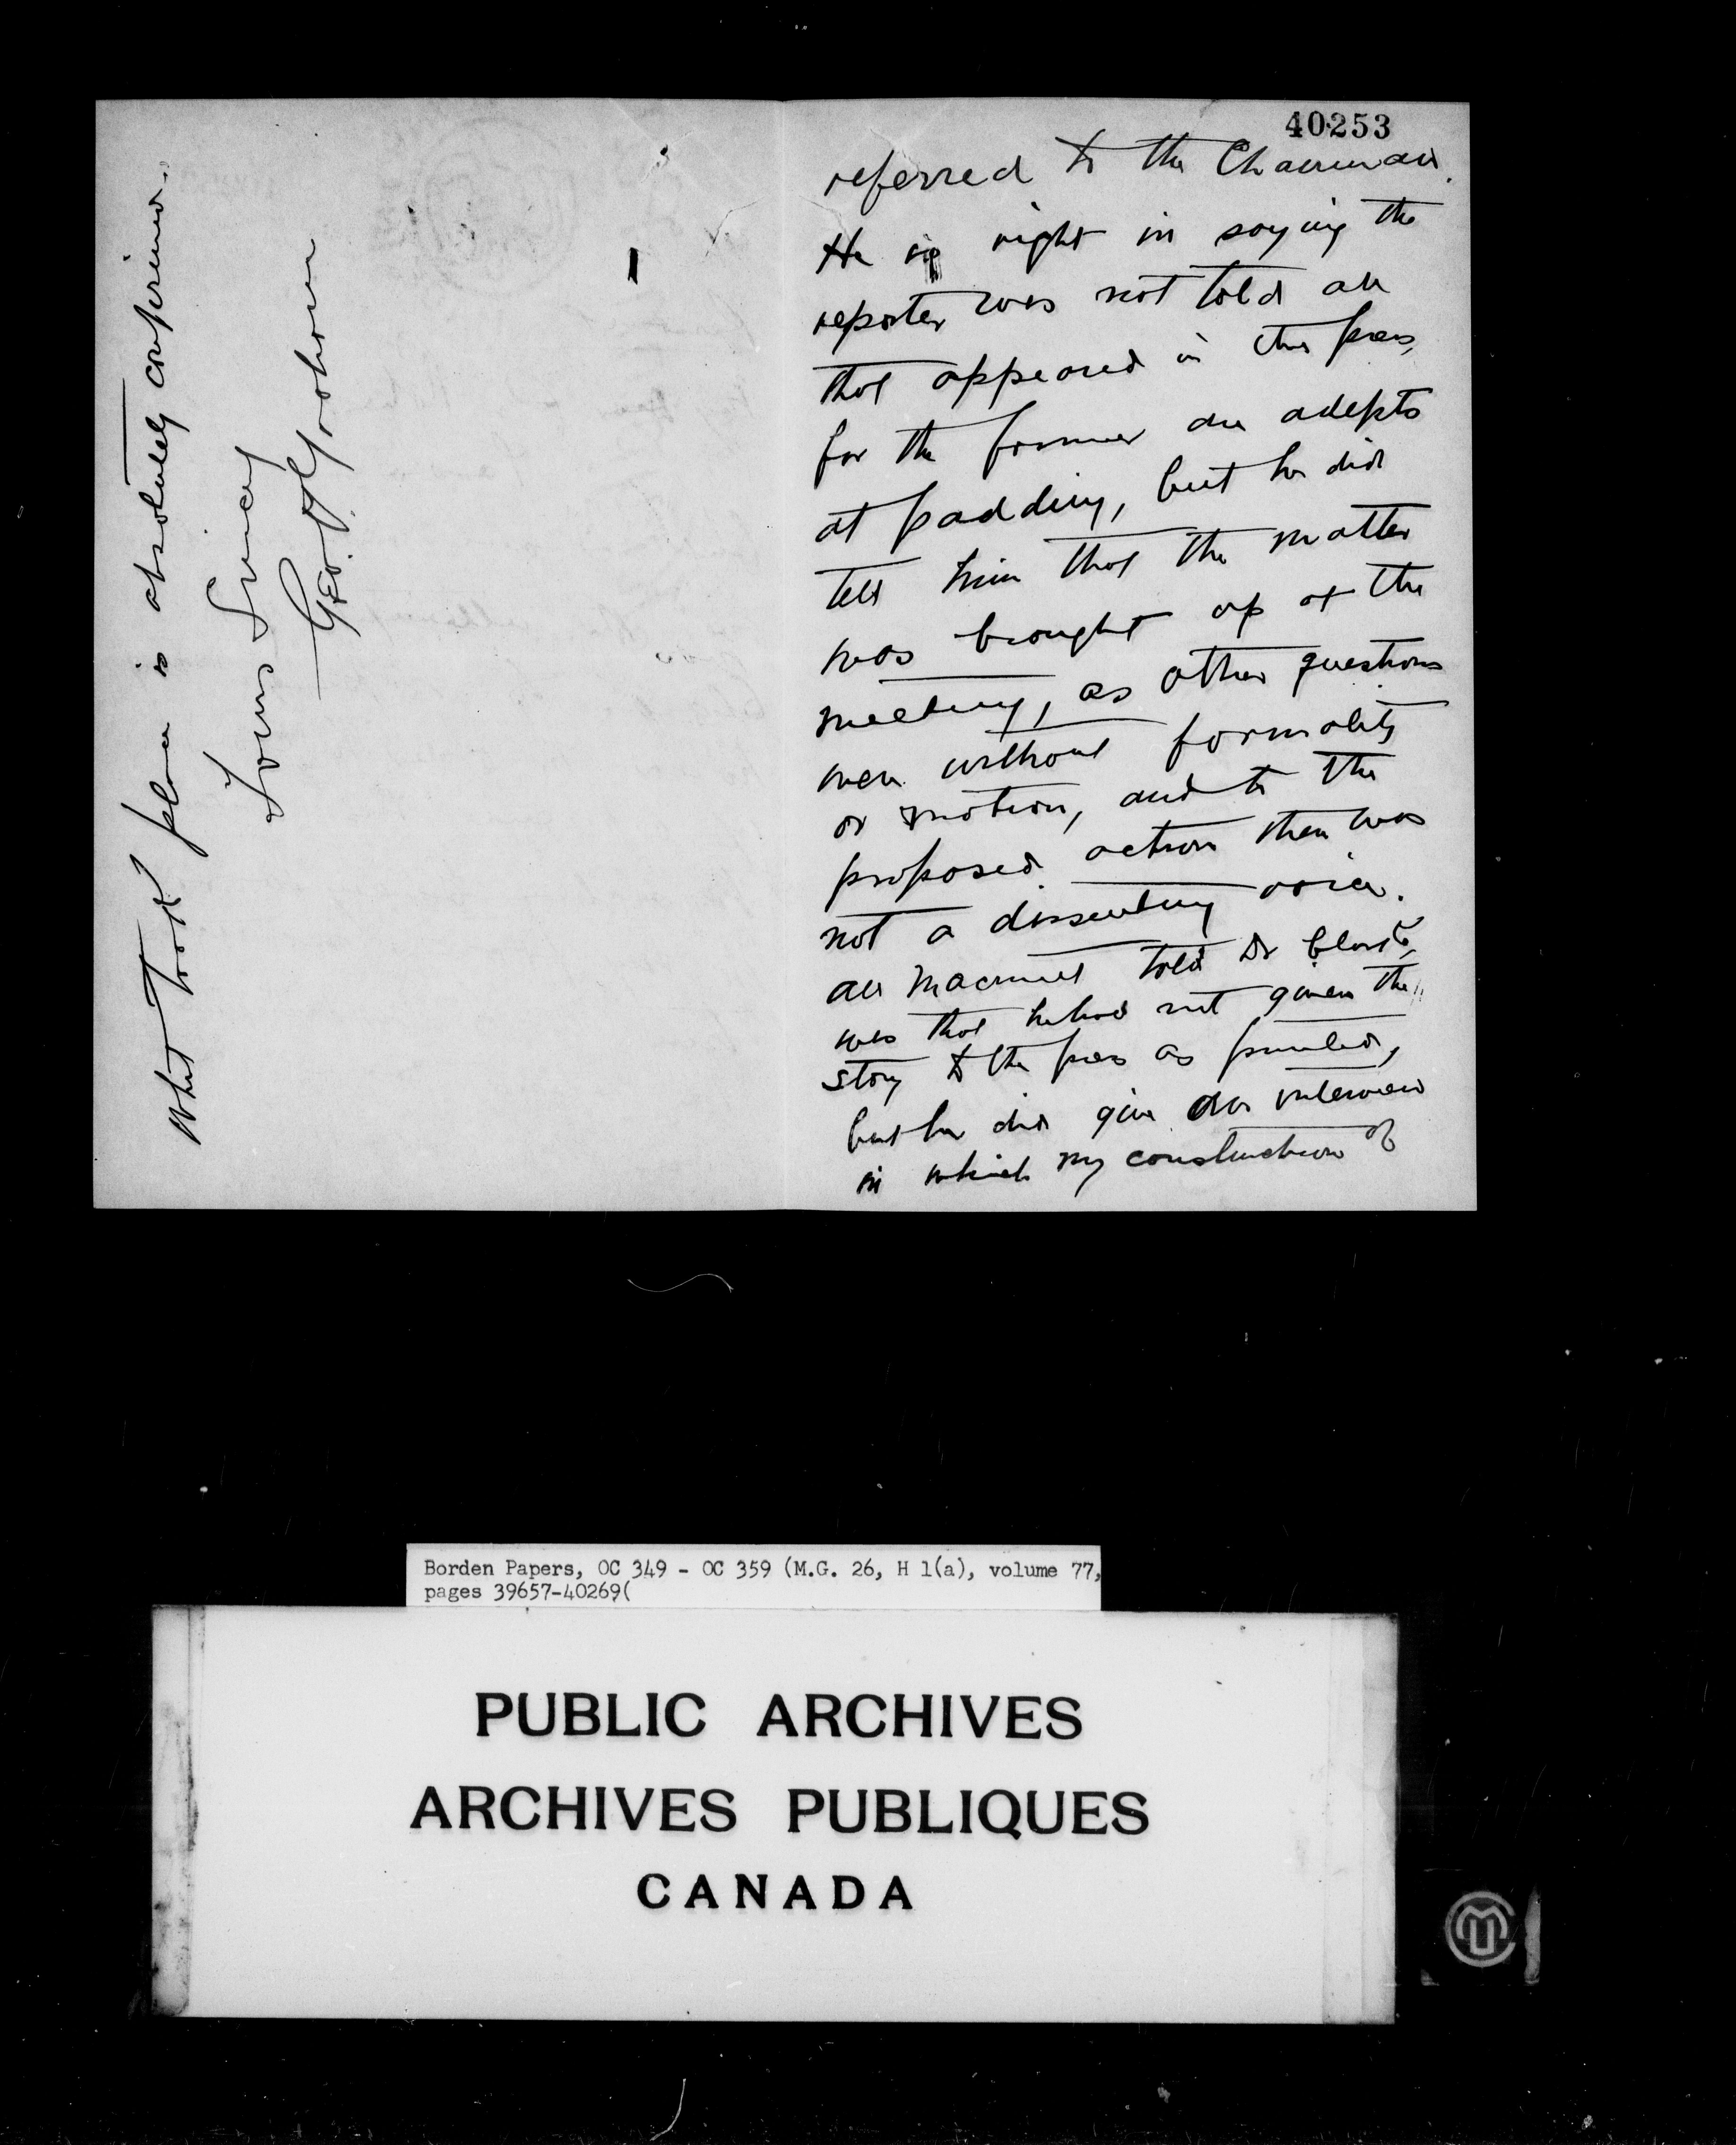 40253
referred to the Chairman.
He is right in saying the
reporter was not told all
that appeared in the press,
for the former are adepts
at padding, but he did
tell him that the matter
was brought up at the
meeting, as other questions
were without formality
or motion, and to the
proposed action there was
not a dissenting voice.
all told Dr
was that he had not given the
story to the press as printed,
but he did give an interview
in which my construction of
what took place is absolutely confirmed.
Yours Sincerely
Geo.
Borden Papers, OC 349 - OC 359 (M.G. 26, H 1(a), volume 77,
pages 39657-40269(
PUBLIC ARCHIVES
ARCHIVES PUBLIQUES
CANADA